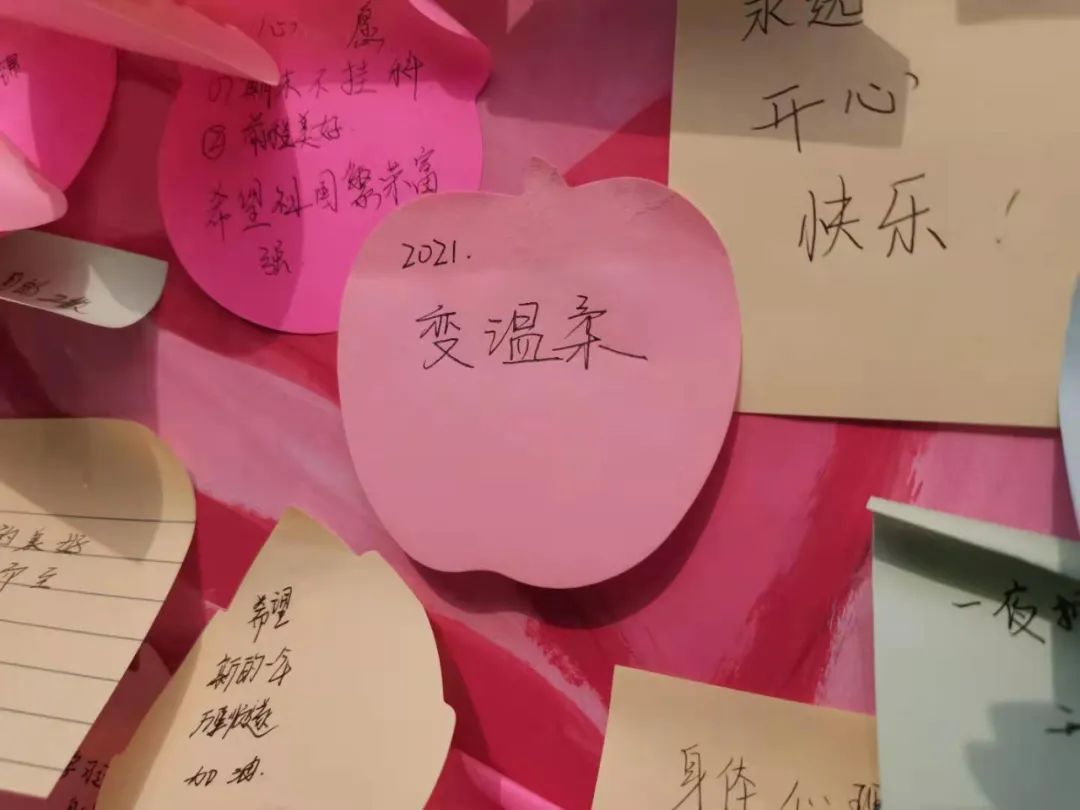 心 愿
① 期末不挂科
② 前程美好.
希望祖国繁荣富
强
永远
开心
快乐!
2021.
变温柔
的美好
希望
新的一年
加油.
一夜
身体